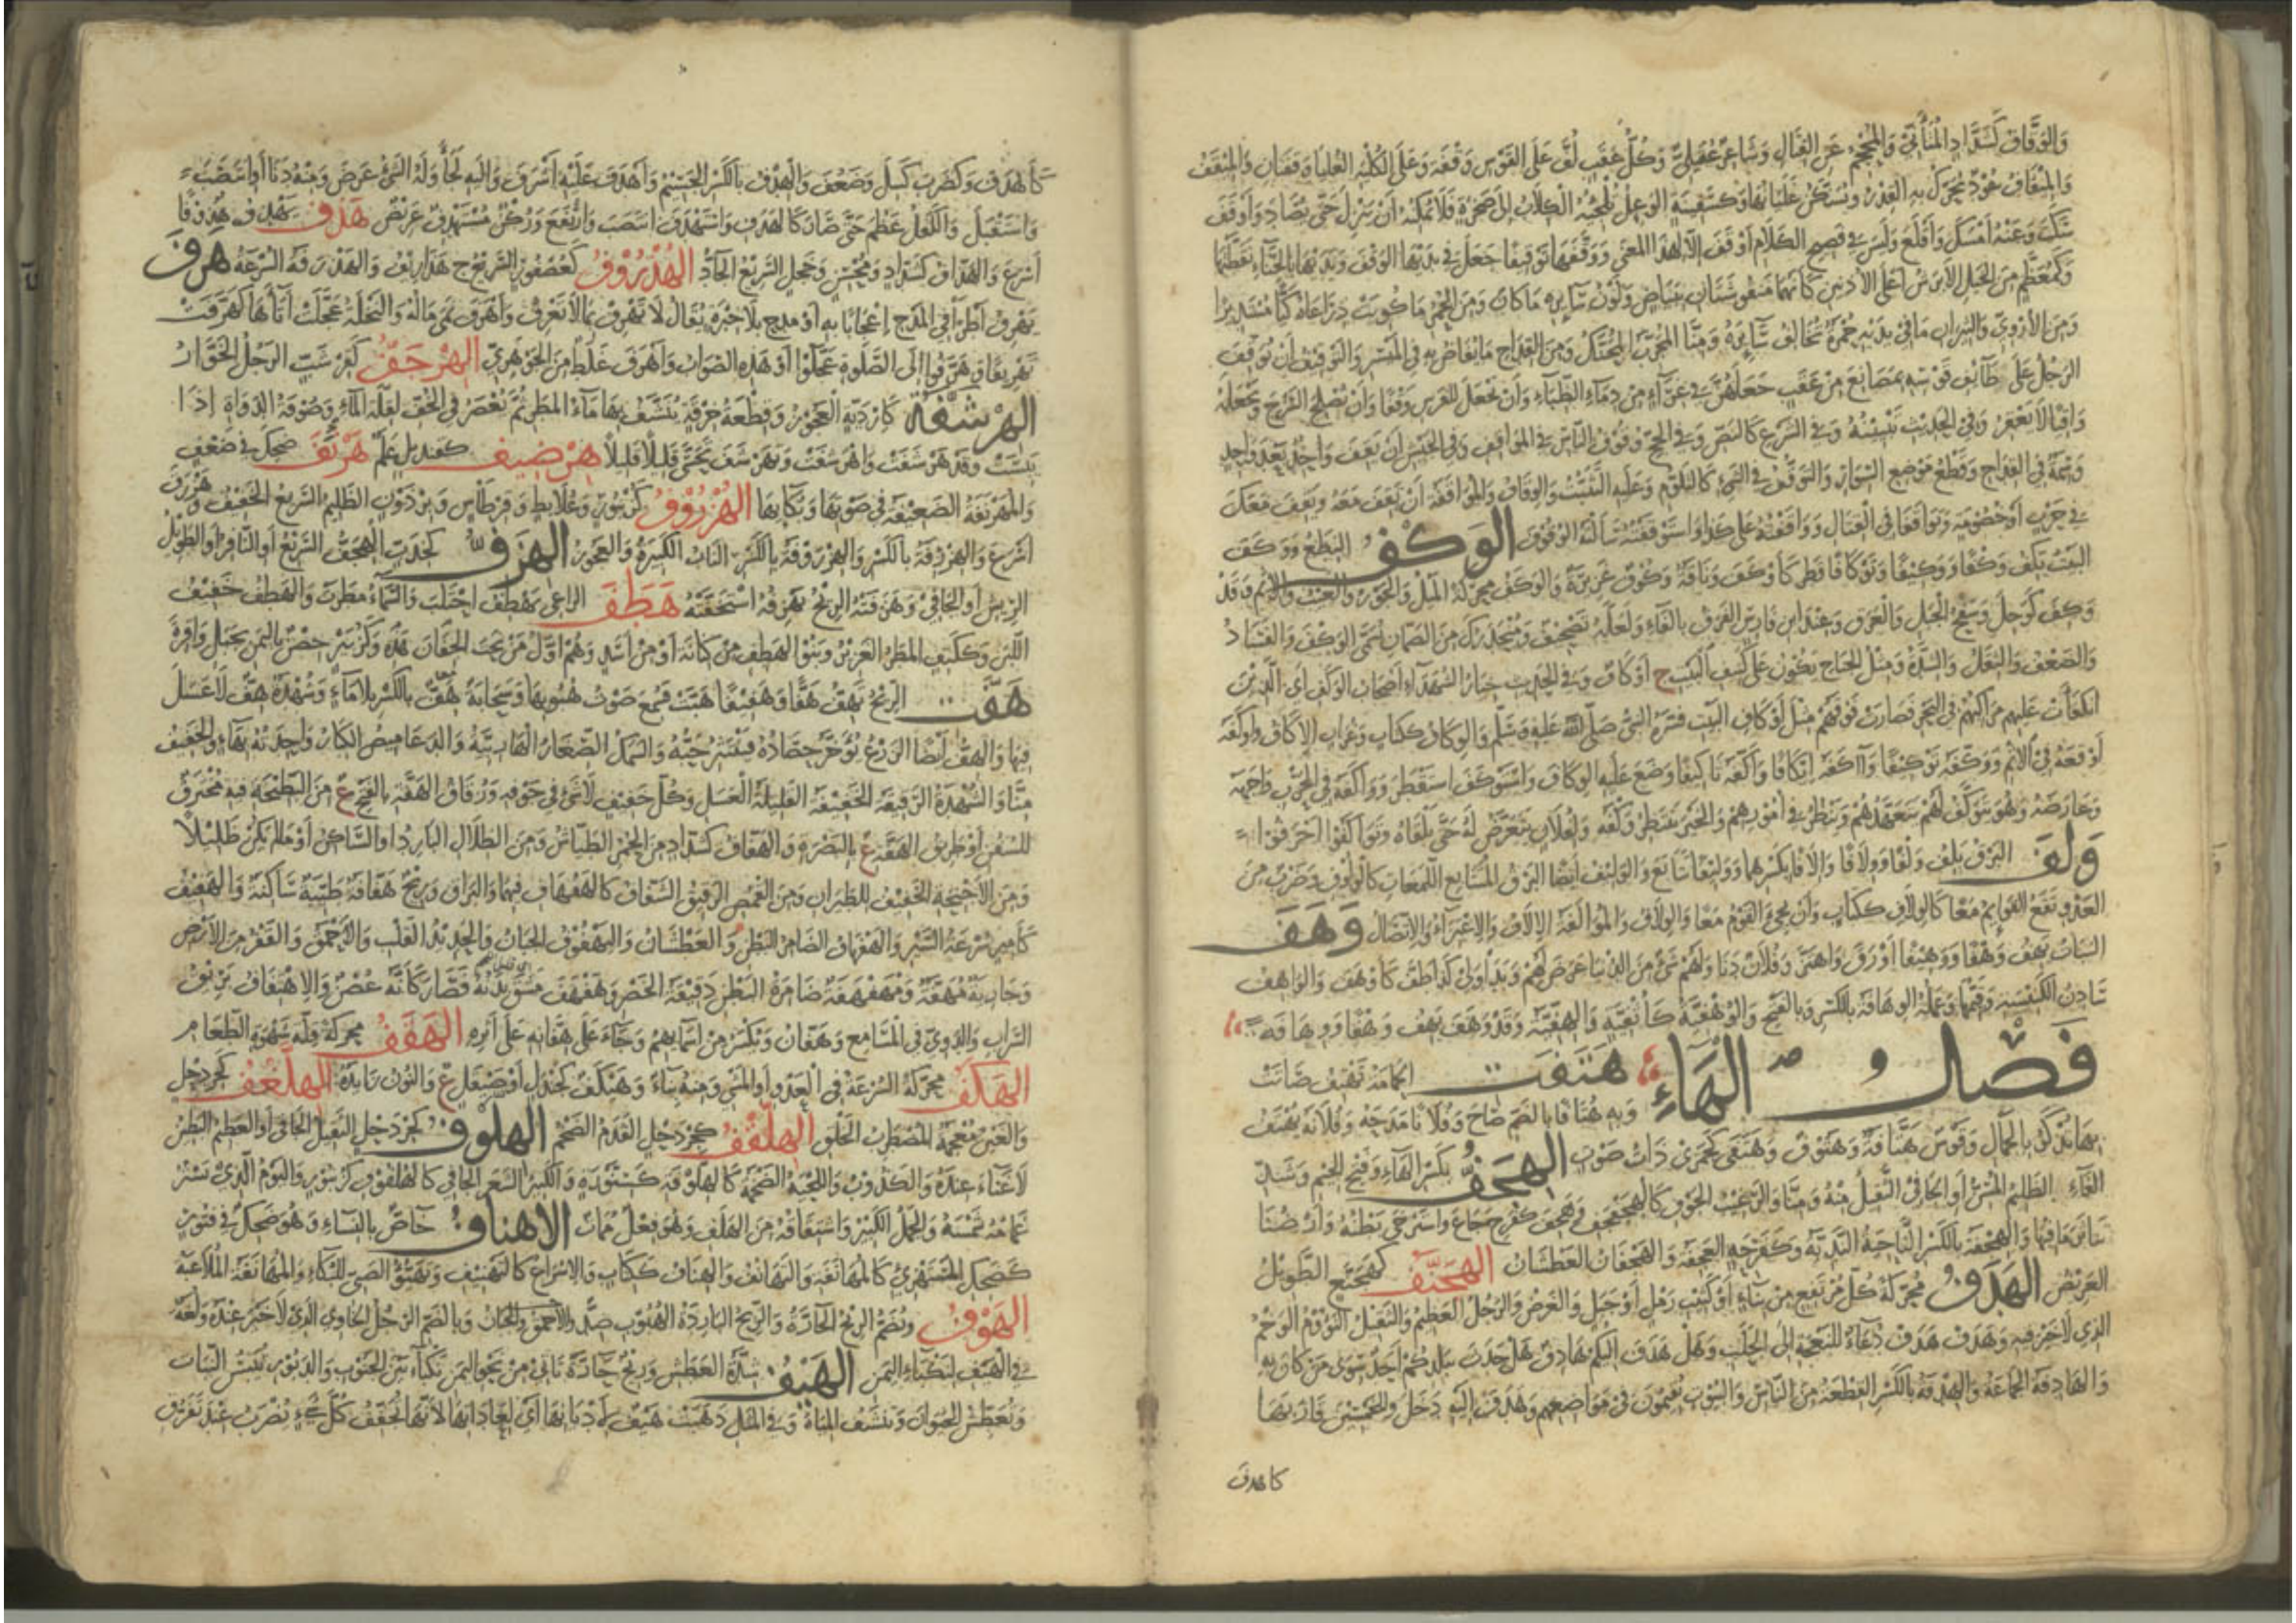 والوقاف كشداد المتأني والمحجم عن القتال وشاعر عقيلي وكل عقب لف على القوس وقفة وعلى الكلية العليا وقفتان والميقف
والميقاف عود يحرك به القدر ويسكن غليانها وكسفينة الوعل تلجئه الكلاب إلى صخرة فلا يمكنه أن ينزل حتى يصاد وأوقف
سكت وعنه أمسك وأقلع وليس في فصيح الكلام أوقف إلا لهذا المعنى ووقفها توقيفا جعل في يديها الوقف ويديها بالحناء نقطهما
وكمعظم من الخيل الأبرش أعلى الأذنين كأنهما منقوشتان ببياض ولون سائره ما كان ومن الحمر ما كويت ذراعاه كيا مستديرا
ومن الأروي والثيران ما في يديه حمرة تخالف سائره ومنا المجرب المحنك ومن القداح ما يفاض به في الميسر والتوقيف أن يوقف
الرجل على طائف قوسه بمضائغ من عقب جعلهن في غراء من دماء الظباء وأن يجعل للفرس وقفا وأن يصلح السرج ويجعله
واقيا لا يعقر وفي الحديث تبيينه وفي الشرع كالنص وفي الحج وقوف الناس في المواقف وفي الجيش أن يقف واحد بعد واحد
وسمة في القداح وقطع موضع السوار والتوقف في الشيء كالتلوم وعليه التثبت والوقاف والمواقفة أن تقف معه ويقف معك
في حرب أو خصومة وتواقفا في القتال وواقفته على كذا واستوقفته سألته الوقوف الوكف النطع ووكف
البيت يكف وكفا ووكيفا وتوكافا قطر كأوكف وناقة وكوف غزيرة والوكف محركة الميل والجور والعيب والإثم وقد
وكف كوجل وسفح الجبل والعرق وعند ابن فارس الفرق بالفاء ولعله تصحيف ومنحدرك من الصمان يسمى الوكف والفساد
والضعف والثقل والشدة ومثل الجناح يكون على كنيف البيت ج أوكاف وفي الحديث خيار الشهداء أصحاب الوكف أي الذين
انكفأت عليهم مراكبهم في البحر فصارت فوقهم مثل أوكاف البيت فسره النبي صلى الله عليه وسلم والوكاف ككتاب وغراب الإكاف وأوكفه
أوقعه في الإثم ووكفه توكيفا وآكفه إيكافا وأكفه تأكيفا وضع عليه الوكاف واستوكف استقطر وواكفه في الحرب واجهه
وعارضه وهو يتوكف لهم يتعهدهم وينظر في أمورهم والخبر ينتظر وكفه ولفلان يتعرض له حتى يلقاه وتواكفوا انحرفوا
ولف البرق يلف ولفا وولافا وإلافا بكسرهما ووليفا تتابع والوليف أيضا البرق المتتابع اللمعان كالولوف وضرب من
العدو تقع القوائم معا كالولاف ككتاب وأن يجيء القوم معا والولاف والمؤالفة الإلاف والاعتزاء والاتصال وهف
النبات يهف وهفا ووهيفا أورق واهتز وفلان دنا ولهم شيء من الدنيا عرض لهم وبدا ولي كذا طف كأوهف والواهف
سادن الكنيسة وقيمها وعمله الوهافة بالكسر وبالفتح والوهفية كأثفية والهفية وقد وهف يهف وهفا ووهافة
فصل الهاء هتفت الحمامة تهتف صاتت
وبه هتافا بالضم صاح وفلانا مدحه وفلانة يهتف
بها تذكر بالجمال وقوس هتافة وهتوف وهتفى كجمزى ذات صوت الهجف بكسر الهاء وفتح الجيم وشد
الفاء الظليم المسن أو الجافي الثقيل منه ومنا والرغيب الجوف كالهجفجف وهجف كفرح جاع واسترخى بطنه وأرضنا
تناثر ما فيها والهجفة بالكسر الناحية الندية وكفرحة العجفة والهجفان العطشان الهجنف كهجنع الطويل
العريض الهدف محركة كل مرتفع من بناء أو كثيب رمل أو جبل والغرض والرجل العظيم والثقيل النؤوم الوخم
الذي لا خير فيه وهدف هدف دعاء للنعجة إلى الحلب وهل هدف إليكم هادف هل حدث ببلدكم أحد سوى من كان به
والهادفة الجماعة والهدفة بالكسر القطعة من الناس والبيوت يقيمون في مواضعهم وهدف إليه دخل وللخمسين قاربها
كاهدف
كأهدف وكضرب كسل وضعف والهدف بالكسر الجسيم وأهدف عليه أشرف وإليه لجأ وله الشيء عرض ومنه دنا أو انتصب
واستقبل والكفل عظم حتى صار كالهدف واستهدف انتصب وارتفع وركن مستهدف عريض هذف يهذف هذوفا
أسرع والهذاف كشداد ومحسن وعجل السريع الحاد الهذروف كعصفور السريع ج هذاريف والهذرفة السرعة هرف
يهرف أطرى في المدح إعجابا به أو مدح بلا خبرة يقال لا تهرف بما لا تعرف وأهرف نمى ماله والنخلة عجلت أتاءها كهرفت
تهريفا وهرفوا إلى الصلوة عجلوا أو هذه الصواب وأهرف غلط من الجوهري الهرجف كقرشب الرجل الخوار
الهرشفة كإردبة العجوز وقطعة خرقة ينشف بها ماء المطر ثم تعصر في الجف لقلة الماء وصوفة الدواة إذا
يبست وقد هرشفت واهرشفت وتهرشف تحسى قليلا قليلا هرضيف كقنديل علم هرنف ضحك في ضعف
والمهرنفة الضعيفة في صوتها وبكائها الهزروف كزنبور وعلابط وقرطاس وبرذون الظليم السريع الخفيف وهزرف
أسرع والهزرفة بالكسر والهزروفة بالكسر الناب الكبيرة والعجوز الهزف كخدب الهجف السريع أو النافر أو الطويل
الريش أو الجافي وهزفته الريح تهزفه استخفته هطف الراعي يهطف احتلب والسماء مطرت والهطف حفيف
اللبن وككتف المطر الغزير وبنو الهطف من كنانة أو من أسد وهم أول من نحت الجفان هذه وكزبير حصن باليمن بجبل واقرة
هفت الريح تهف هفا وهفيفا هبت فسمع صوت هبوبها وسحابة هف بالكسر بلا ماء وشهدة هف لا عسل
فيها والهف أيضا الزرع يؤخر حصاده فينتثر حبه والسمك الصغار الهاربية والدعاميص الكبار واحدته بهاء والخفيف
منا والشهدة الرقيقة الخفيفة القليلة العسل وكل خفيف لا شيء في جوفه وزقاق الهفة بالفتح ع من البطيحة فيه مخترق
للسفن أو طريق الهفة ع بالبصرة والهفاف كشداد من الحمر الطياش ومن الظلال البارد أو الساكن أو ما لم يكن ظليلا
ومن الأجنحة الخفيف للطيران ومن القمص الرقيق الشفاف كالهفهاف فيهما والبراق وريح هفافة طيبة ساكنة والهفيف
كأمير سرعة السير والهفهاف الضامر البطن والعطشان واليهفوف الجبان والحديد القلب والأحمق والقفر من الأرض
وجارية مهففة ومهفهفة ضامرة البطن دقيقة الخصر وهفهف مشق بدنه فصار كأنه غصن والاهتفاف بريق
السراب والدوي في المسامع وهفان ويكسر من أسمائهم وجاء على هفانه على أثره الهقف محركة قلة شهوة الطعام
الهكف محركة السرعة في العدو أو المشي ومنه بناء وهنكف كجندل أو صيقل ع والنون زائدة الهلغف كجردحل
والغين معجمة المضطرب الخلق الهلقف كجردحل القدم الضخم الهلوف كجردحل الثقيل الجافي أو العظيم البطين
لا غناء عنده والكذوب واللحية الضخمة كالهلوفة كسنورة والكثير الشعر الجافي كالهلفوف كزنبور واليوم الذي يستر
غمامه شمسه والجمل الكبير واشتقاقه من الهلف وهو فعل ممات الاهناف خاص بالنساء وهو ضحك في فتور
كضحك المستهزئ كالمهانفة والتهانف والهناف ككتاب والإسراع كالتهنيف وتهيؤ الصبي للبكاء والمهانفة الملاعبة
الهوف ويضم الريح الحارة والريح الباردة الهبوب ضد والأحمق والجبان وبالضم الرجل الخاوي الذي لا خير عنده ولغة
في الهيف لنكباء اليمن الهيف شدة العطش وريح حارة تأتي من نحو اليمن نكباء بين الجنوب والدبور تيبس النبات
وتعطش الحيوان وتنشف المياه وفي المثل ذهبت هيف لأديانها أي لعاداتها لأنها تجفف كل شيء يضرب عند تفرق